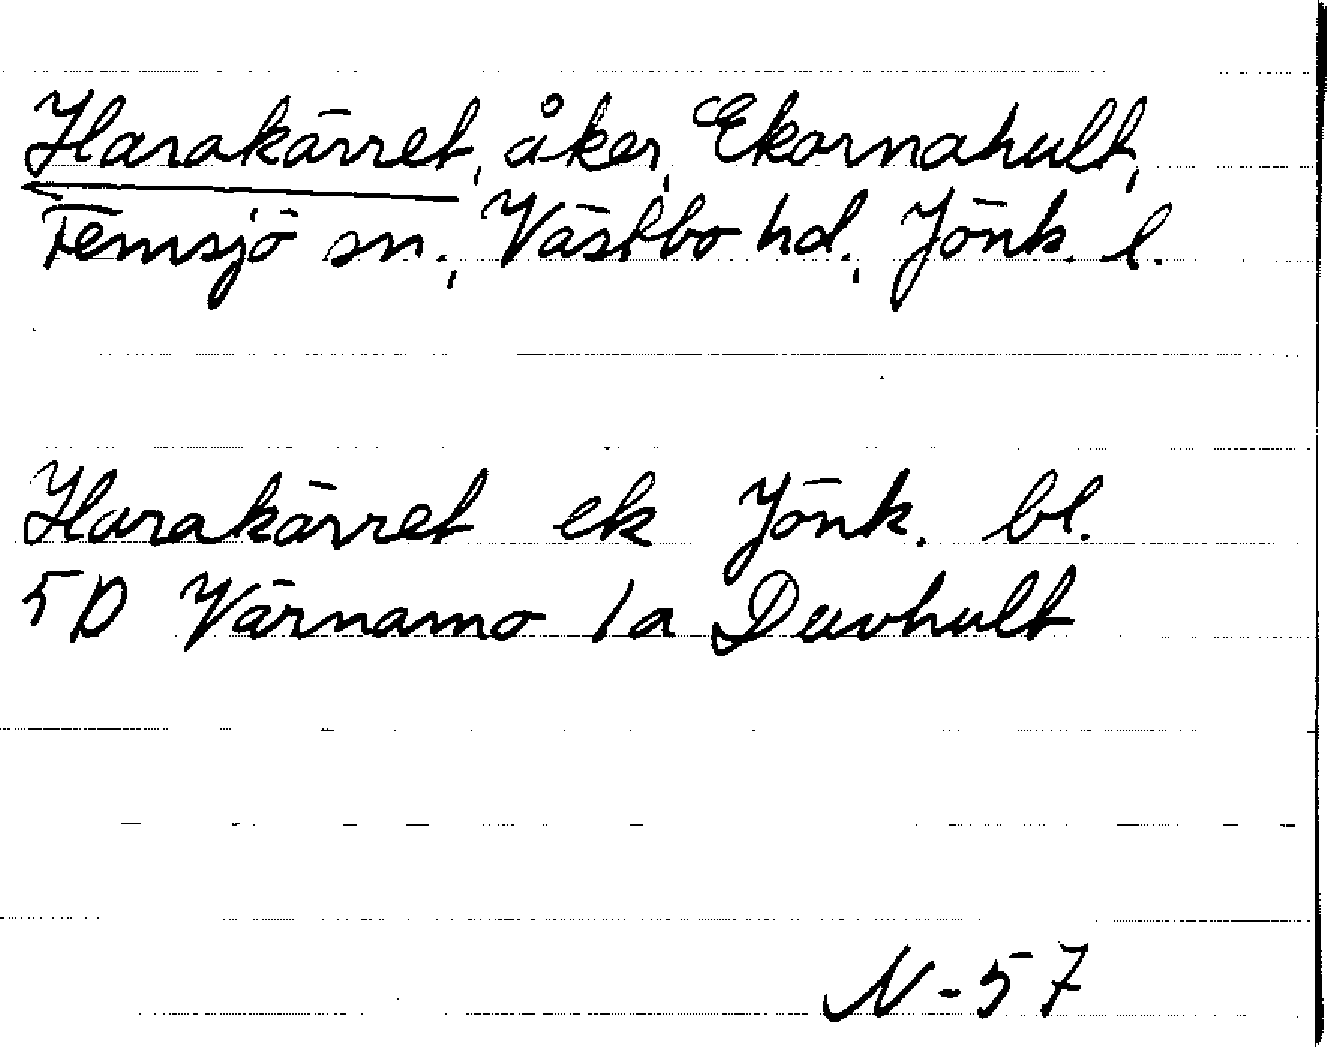 Harakärret, åker, Ekornahult,
Femsjö sn., Västbo hd., Jönk. l.
Harakärret ek Jönk. bl.
5D Värnamo 1a Duvhult
N-57